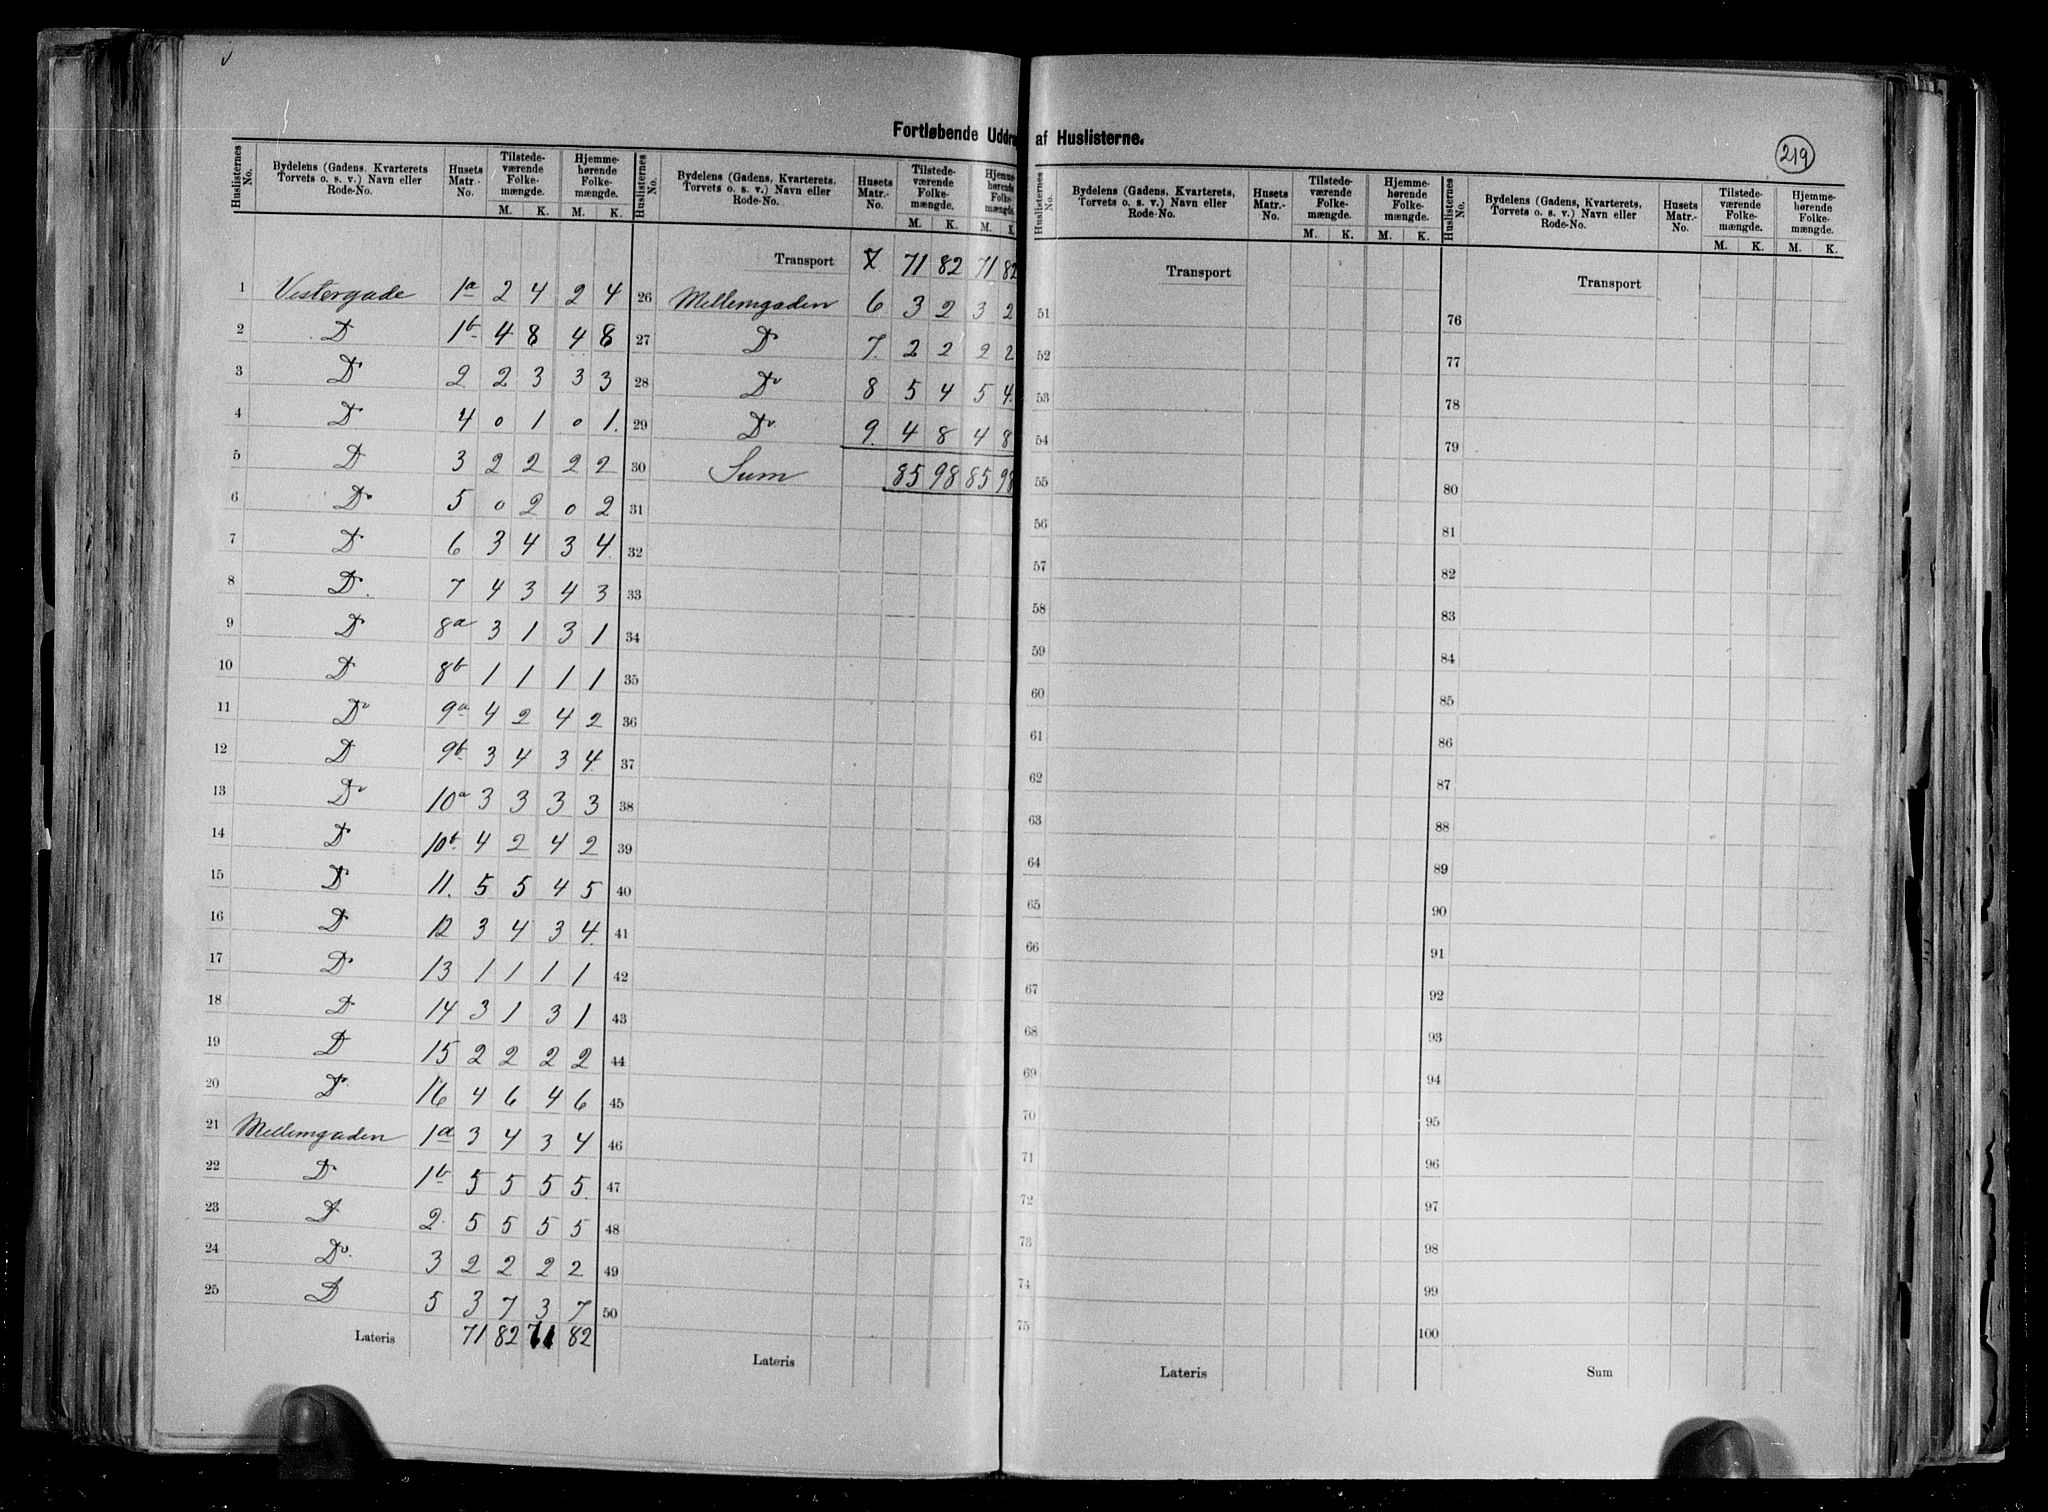 Fortløbende Uddrag af Huslisterne.
219
Huslisternes No. Bydelens (Gadens, Kvarterets Torvets o. s. v.) Navn eller Rode-No. Husets Matr.-No. Tilstedeværende Folkemængde. M. K. Hjemmehørende Folkemængde. M. K.
1 Vestergade 1a 2 4 2 4
2 Do 1b 4 8 4 8
3 Do 2 2 3 3 3
4 Do 4 0 1 0 1.
5 Do 3 2 2 2 2
6 Do 5 0 2 0 2
7 Do 6 3 4 3 4.
8 Do 7 4 3 4 3
9 Do 8a 3 1 3 1
10 Do 8b 1 1 1 1
11 Do 9a 4 2 4 2
12 Do 9b 3 4 3 4
13 Do 10a 3 3 3 3
14 Do 10b 4 2 4 2
15 Do 11. 5 5 4 5
16 Do 12 3 4 3 4.
17 Do 13 1 1 1 1
18 Do 14 3 1 3 1
19 Do 15 2 2 2 2
20 Do 16 4 6 4 6
21 Mellemgaden 1a 3 4 3 4
22 Do 1b 5 5 5 5.
23 Do 2. 5 5 5 5
24 Do 3 2 2 2 2
25 Do 5 3 7 3 7
Lateris 71 82 71 82
Huslisternes No. Bydelens (Gadens, Kvarterets, Torvets o. s. v.) Navn eller Rode-No. Husets Matr.-No. Tilstedeværende Folkemængde. M. K. Hjemmehørende Folkemængde. M. K.
Transport 71 82 71 82
26 Mellemgaden 6 3 2 3 2
27 Do 7. 2 2 2 2
28 Do 8 5 4 5 4.
29 Do 9. 4 8 4 8
30 Sum 85 98 85 98
31
32
33
34
35
36
37
38
39
40
41
42
43
44
45
46
47
48
49
50
Lateris
Huslisternes No. Bydelens (Gadens, Kvarterets, Torvets o. s. v.) Navn eller Rode-No. Husets Matr.-No. Tilstedeværende Folkemængde. M. K. Hjemmehørende Folkemængde. M. K.
Transport
51
52
53
54
55
56
57
58
59
60
61
62
63
64
65
66
67
68
69
70
71
72
73
74
75
Lateris
Huslisternes No. Bydelens (Gaden, Kvarterets, Torvets o. s. v.) Navn eller Rode-No. Husets Matr.-No. Tilstedeværende Folkemængde. M. K. Hjemmehørende Folkemængde. M. K.
Transport
76
77
78
79
80
81
82
83
84
85
86
87
88
89
90
91
92
93
94
95
96
97
98
99
100
Sum